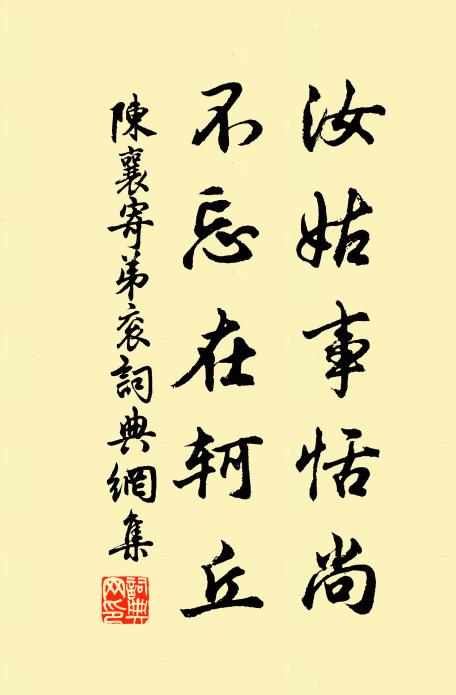 汝姑事恬尚
不忘在轲丘
陳襄寄弟衮詞典網集
詞典网印